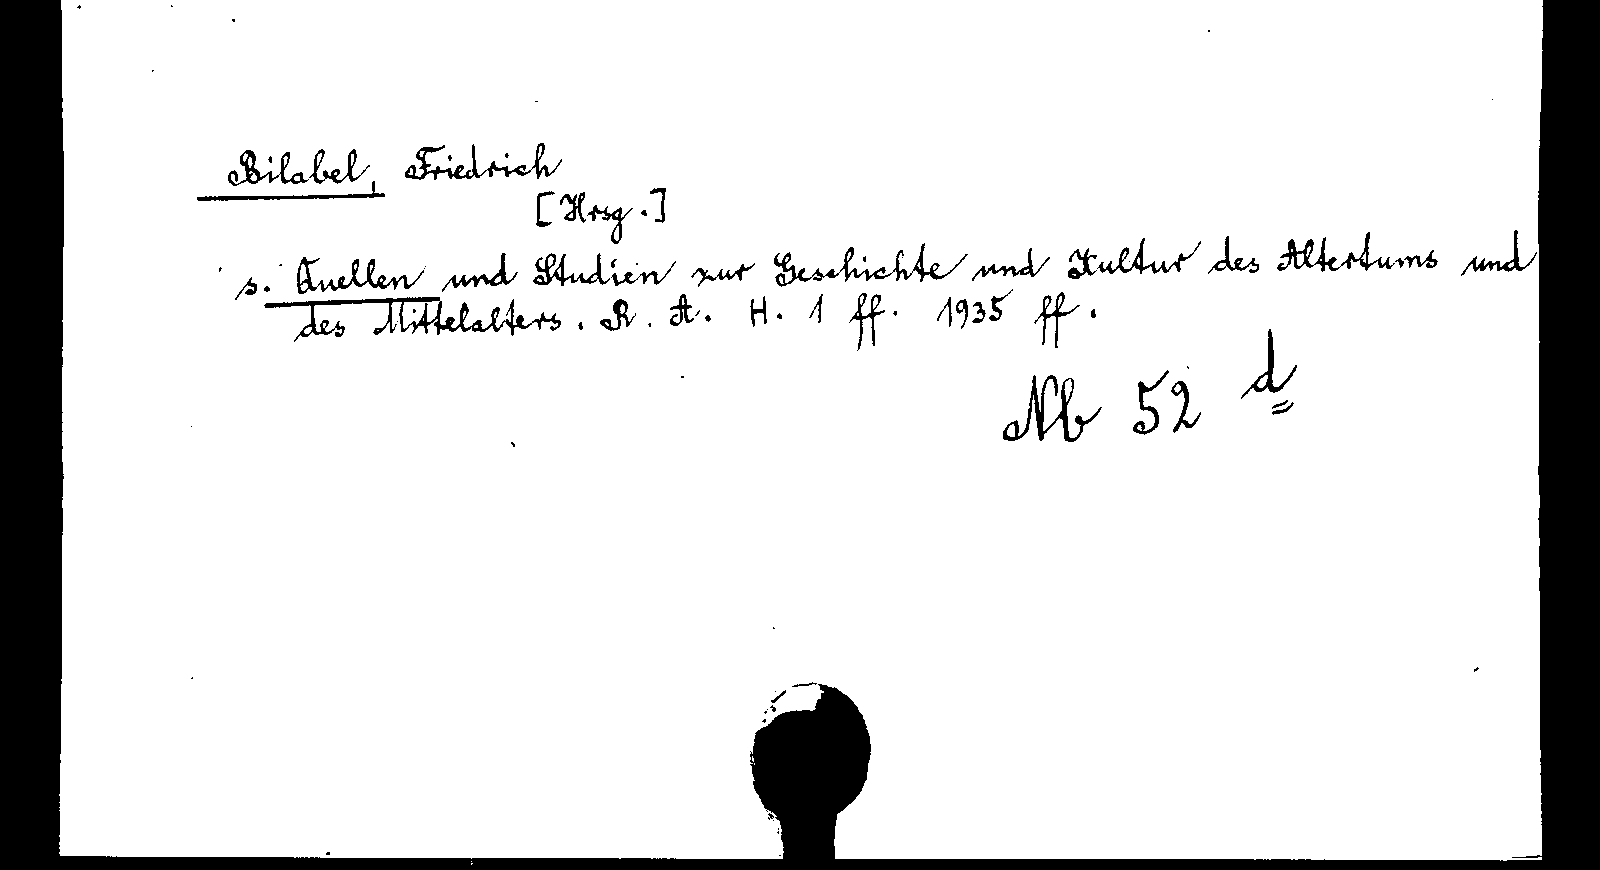 Bilabel, Friedrich
[Hrsg.]
s. Quellen und Studien zur Geschichte und Kultur des Altertums und
des Mittelalters. R. A. H. 1 ff. 1935 ff.
Nb 52 d